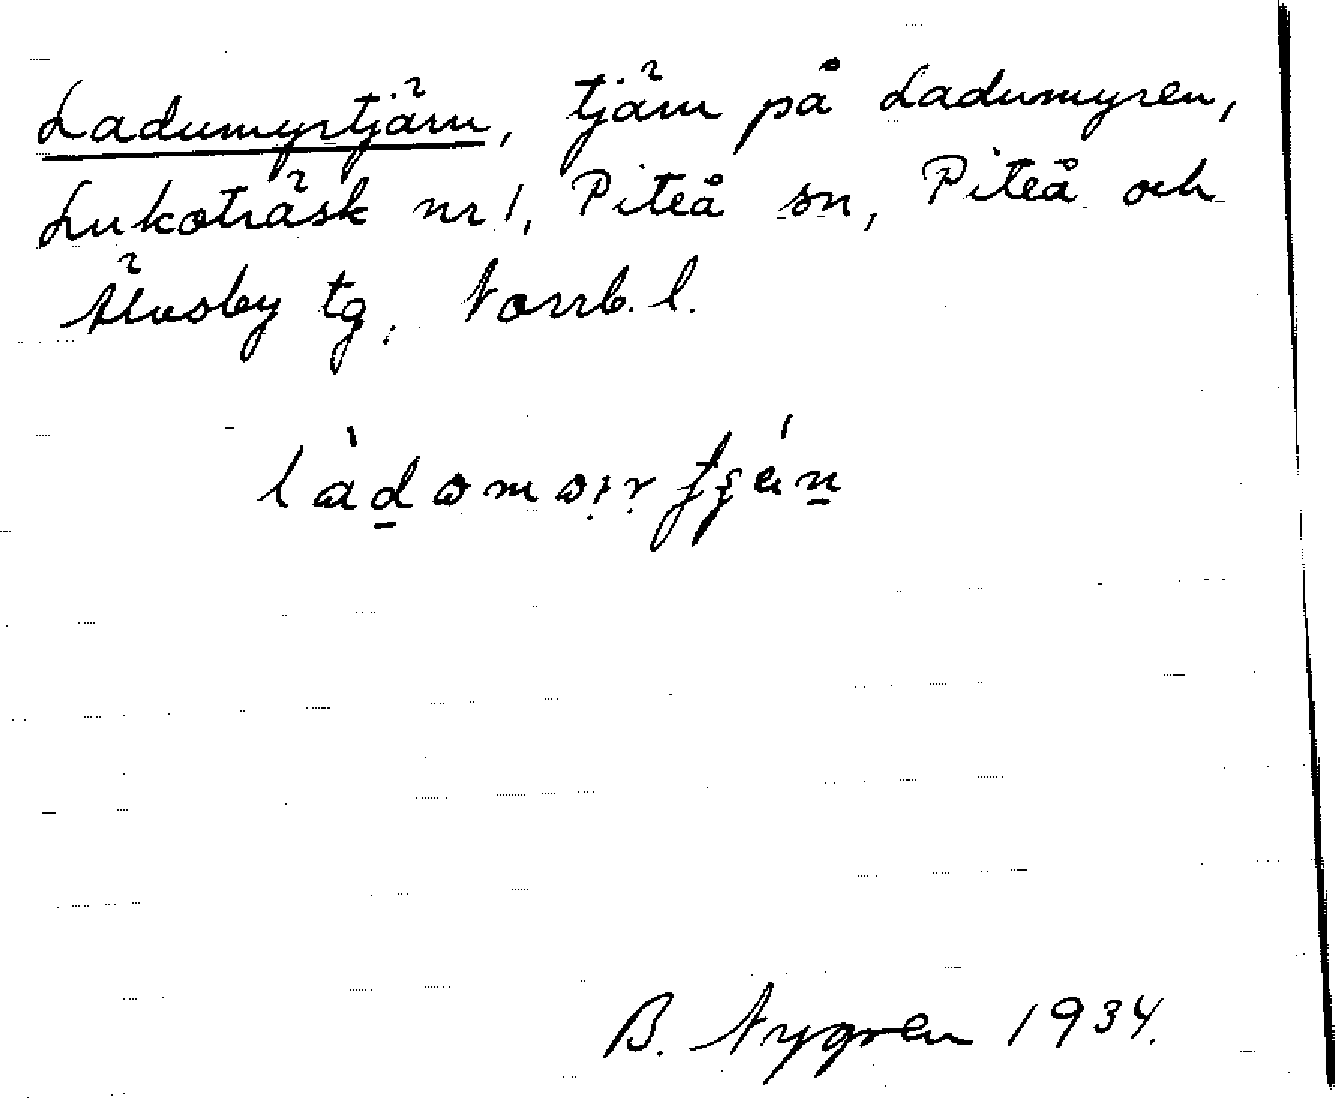 Ladumyrtjärn, tjärn på Ladumyren,
Lukoträsk nr 1, Piteå sn, Piteå och
Älvsby tg, Norrb. l.
B. Nygren 1934.